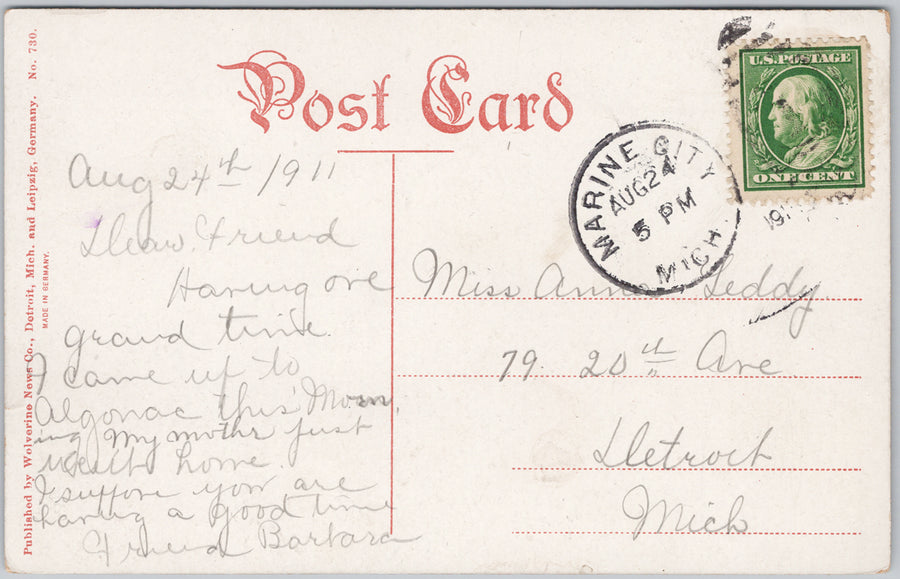 Post Card
Published by Wolverine News Co., Detroit, Mich. and Leipzig, Germany. No. 730.
MADE IN GERMANY.
U.S. POSTAGE
ONE CENT
MARINE CITY
AUG 24
5 PM
MICH.
191
Aug 24th 1911
Dear Friend
Having one
grand time.
I came up to
Algonac this Morn
ing My mother just
went home.
I suppose you are
having a good time
Friend Barbara
Miss Anna Leddy.
79. 20th Ave
Detroit
Mich